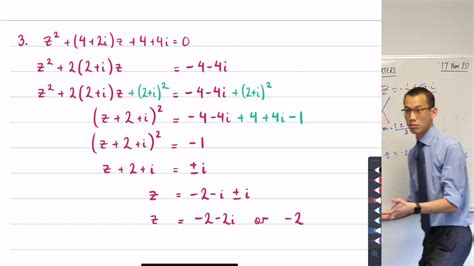 3. z² + (4+2i)z + 4+4i = 0
z² + 2(2+i)z = -4-4i
z² + 2(2+i)z + (2+i)² = -4-4i + (2+i)²
(z+2+i)² = -4-4i + 4+4i-1
(z+2+i)² = -1
z+2+i = ±i
z = -2-i ± i
z = -2-2i or -2
17 Nov 20